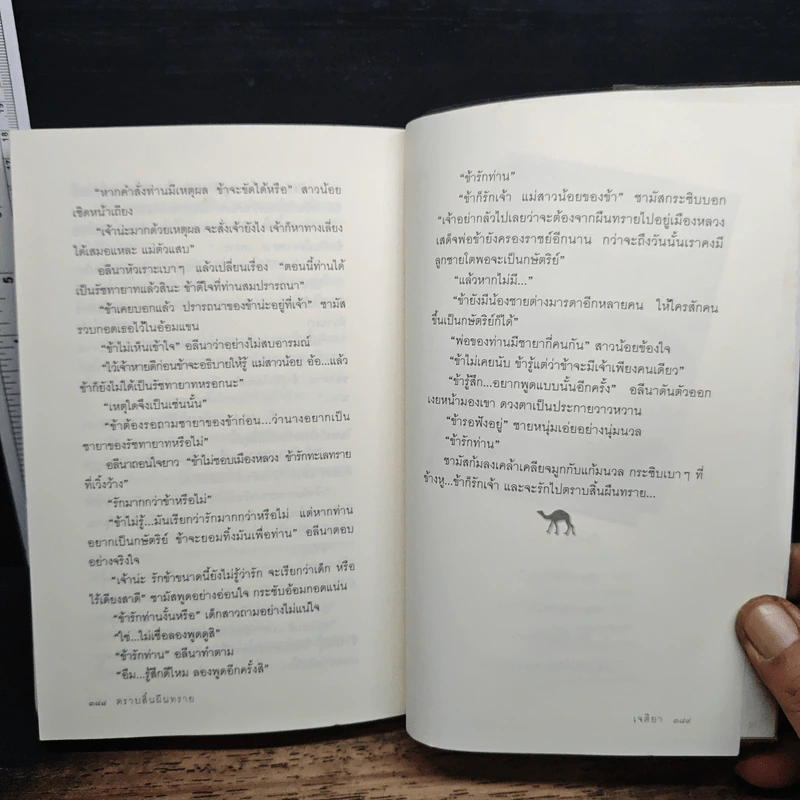 "หากคำสั่งท่านมีเหตุผล ข้าจะขัดได้หรือ" สาวน้อย
เชิดหน้าเถียง
"เจ้าน่ะมากด้วยเหตุผล จะสั่งเจ้ายังไง เจ้าก็หาทางเลี่ยง
ได้เสมอแหละ แม่ตัวแสบ"
อลีนาหัวเราะเบาๆ แล้วเปลี่ยนเรื่อง "ตอนนี้ท่านได้
เป็นรัชทายาทแล้วสินะ ข้าดีใจที่ท่านสมปรารถนา"
"ข้าเคยบอกแล้ว ปรารถนาของข้าน่ะอยู่ที่เจ้า" ชามัส
รวบกอดเธอไว้ในอ้อมแขน
"ข้าไม่เห็นเข้าใจ" อลีนาว่าอย่างไม่สบอารมณ์
"ไว้เจ้าหายดีก่อนข้าจะอธิบายให้รู้ แม่สาวน้อย อ้อ...แล้ว
ข้าก็ยังไม่ได้เป็นรัชทายาทหรอกนะ"
"เหตุใดจึงเป็นเช่นนั้น"
"ข้าต้องรอถามชายาของข้าก่อน...ว่านางอยากเป็น
ชายาของรัชทายาทหรือไม่"
อลีนาถอนใจยาว "ข้าไม่ชอบเมืองหลวง ข้ารักทะเลทราย
ที่เวิ้งว้าง"
"รักมากกว่าข้าหรือไม่"
"ข้าไม่รู้...มันเรียกว่ารักมากกว่าหรือไม่ แต่หากท่าน
อยากเป็นกษัตริย์ ข้าจะยอมทิ้งมันเพื่อท่าน" อลีนาตอบ
อย่างจริงใจ
"เจ้าน่ะ รักข้าขนาดนี้ยังไม่รู้ว่ารัก จะเรียกว่าเด็ก หรือ
ไร้เดียงสาดี" ชามัสพูดอย่างอ่อนใจ กระชับอ้อมกอดแน่น
"ข้ารักท่านงั้นหรือ" เด็กสาวถามอย่างไม่แน่ใจ
"ใช่...ไม่เชื่อลองพูดดูสิ"
"ข้ารักท่าน" อลีนาทำตาม
"อืม...รู้สึกดีไหม ลองพูดอีกครั้งสิ"
๓๘๘ ตราบสิ้นผืนทราย
"ข้ารักท่าน"
"ข้าก็รักเจ้า แม่สาวน้อยของข้า" ชามัสกระซิบบอก
"เจ้าอย่ากลัวไปเลยว่าจะต้องจากผืนทรายไปอยู่เมืองหลวง
เสด็จพ่อข้ายังครองราชย์อีกนาน กว่าจะถึงวันนั้นเราคงมี
ลูกชายโตพอจะเป็นกษัตริย์"
"แล้วหากไม่มี..."
"ข้ายังมีน้องชายต่างมารดาอีกหลายคน ให้ใครสักคน
ขึ้นเป็นกษัตริย์ก็ได้"
"พ่อของท่านมีชายากี่คนกัน" สาวน้อยข้องใจ
"ข้าไม่เคยนับ ข้ารู้แต่ว่าข้าจะมีเจ้าเพียงคนเดียว"
"ข้ารู้สึก...อยากพูดแบบนั้นอีกครั้ง" อลีนาดันตัวออก
เงยหน้ามองเขา ดวงตาเป็นประกายวาวหวาน
"ข้ารอฟังอยู่" ชายหนุ่มเอ่ยอย่างนุ่มนวล
"ข้ารักท่าน"
ชามัสก้มลงเคล้าเคลียจมูกกับแก้มนวล กระซิบเบาๆ ที่
ข้างหู...ข้าก็รักเจ้า และจะรักไปตราบสิ้นผืนทราย...
เจสิยา ๓๘๙